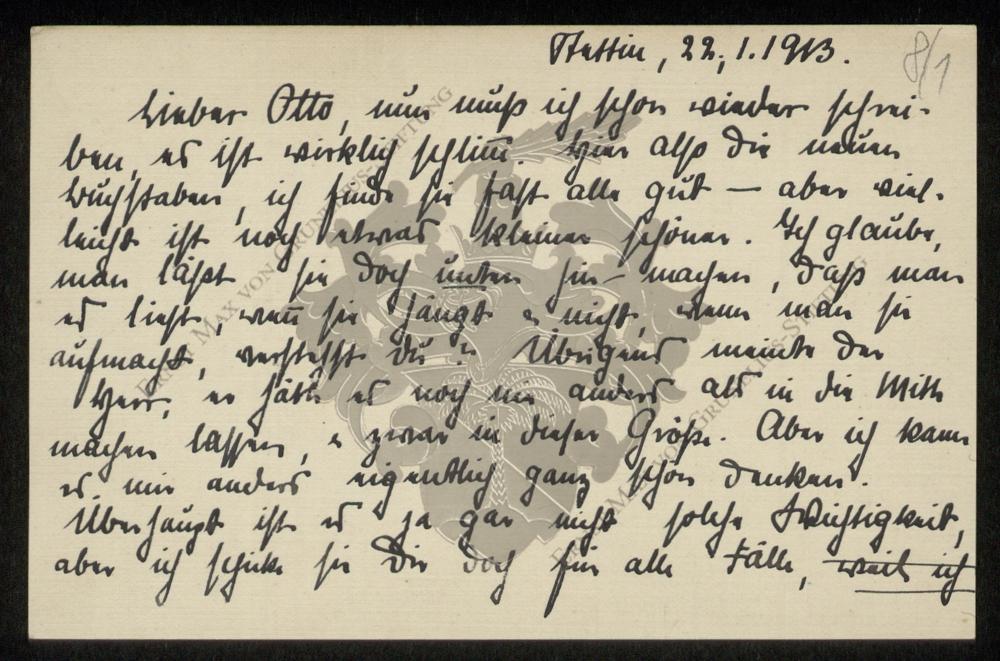 Stettin, 22.1.1913.
8/1
Lieber Otto, nun muß ich schon wieder schrei-
ben, es ist wirklich schlim̅. Hier also die neuen
Buchstaben, ich finde sie fast alle gut — aber viel-
leicht ist noch etwas kleiner schöner. Ich glaube,
man läßt sie doch unten hin machen, daß man
es liest, wen̅ sie hängt u nicht, wenn man sie
aufmacht, verstehst Du? Übrigens meinte der
Herr, er hätte es noch nie anders als in die Mitte
machen lassen, u zwar in dieser Größe. Aber ich kann
es mir anders eigentlich ganz schön denken.
Überhaupt ist es ja gar nicht solche Wichtigkeit,
aber ich schicke sie Dir doch für alle Fälle, weil ich